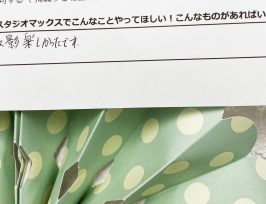 スタジオマックスでこんなことやってほしい！こんなものがあればい
影 楽しかったです